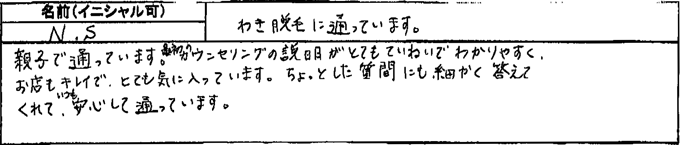 名前(イニシャル可)
N.S
わき脱毛に通っています。
親子で通っています。最初のカウンセリングの説明がとてもていねいでわかりやすく、
お店もキレイで、とても気に入っています。ちょっとした質問にも細かく答えて
くれて、いつも安心して通っています。